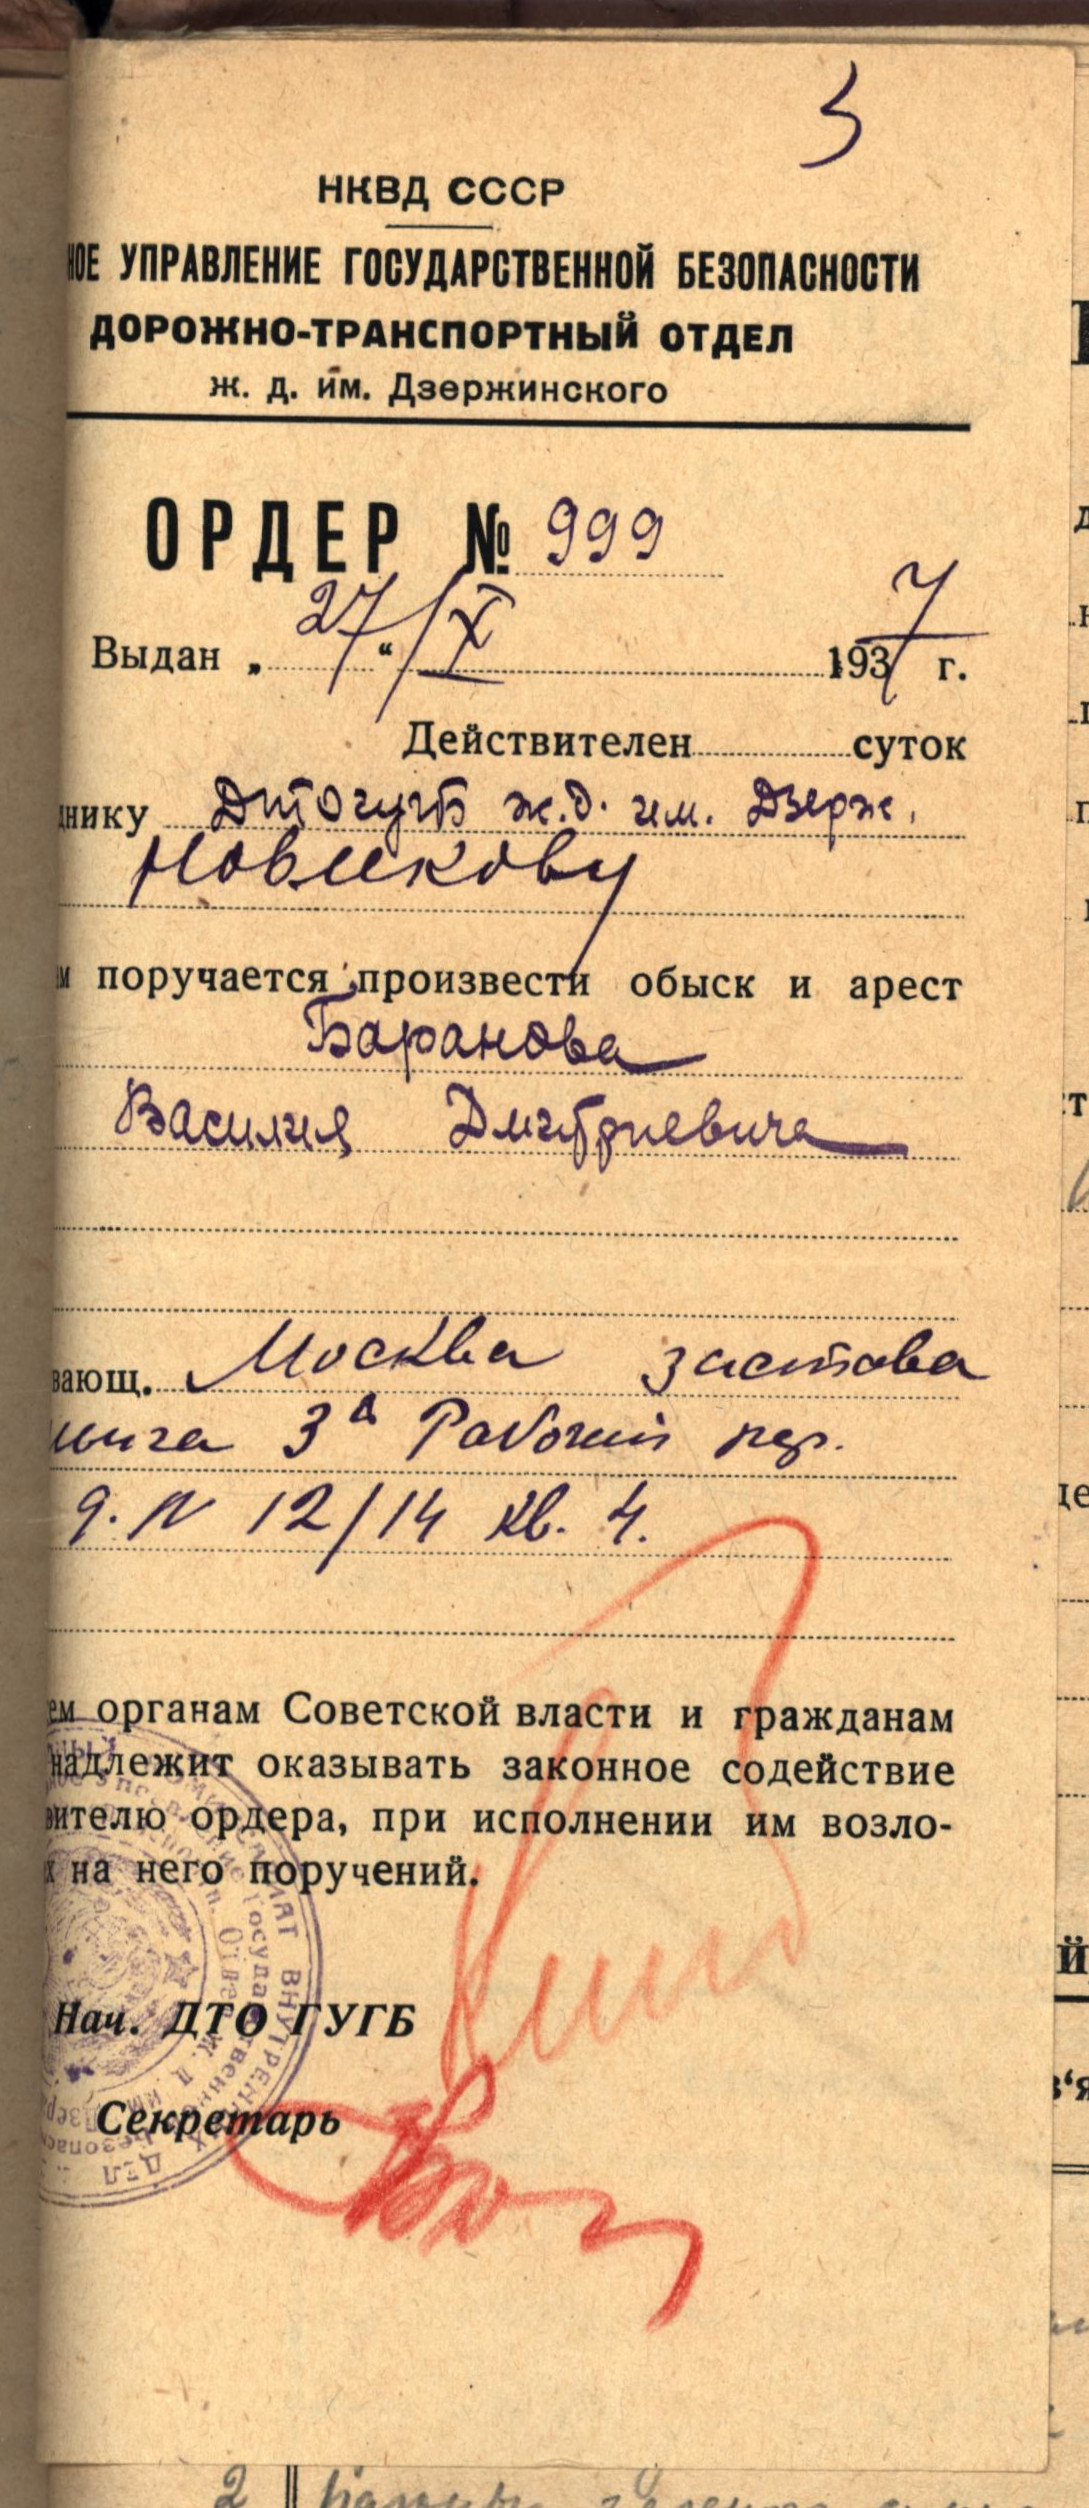 3
НКВД СССР
НОЕ УПРАВЛЕНИЕ ГОСУДАРСТВЕННОЙ БЕЗОПАСНОСТИ
ДОРОЖНО-ТРАНСПОРТНЫЙ ОТДЕЛ
ж. д. им. Дзержинского
ОРДЕР № 999
Выдан „27“/X 1937 г.
Действителен суток
днику ДТОГУГБ ж.д. им. Дзерж.
Новикову
м поручается произвести обыск и арест
Баранова
Василия Дмитриевича
вающ. Москва застава
ьича 3й Рабочий пер.
д. N 12/14 кв. 4.
ем органам Советской власти и гражданам
надлежит оказывать законное содействие
вителю ордера, при исполнении им возло-
х на него поручений.
Нач. ДТО ГУГБ
Секретарь
2